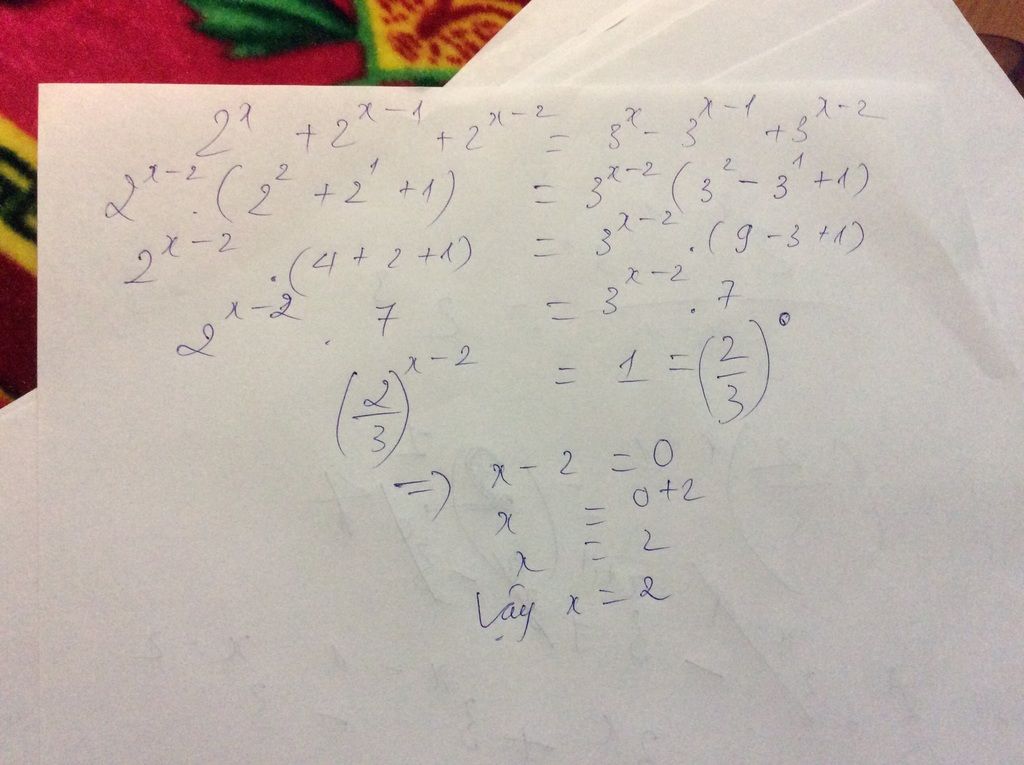 2^x + 2^{x-1} + 2^{x-2} = 3^x - 3^{x-1} + 3^{x-2}
2^{x-2} . (2^2 + 2^1 + 1) = 3^{x-2} (3^2 - 3^1 + 1)
2^{x-2} . (4 + 2 + 1) = 3^{x-2} . (9 - 3 + 1)
2^{x-2} . 7 = 3^{x-2} . 7
(2/3)^{x-2} = 1 = (2/3)^0
=> x - 2 = 0
x = 0 + 2
x = 2
Vậy x = 2